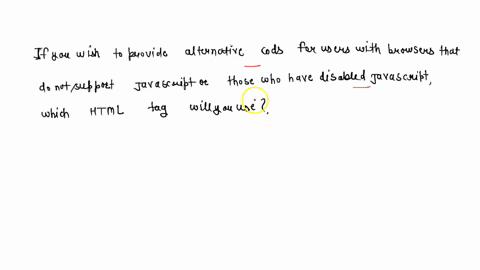 If you wish to provide alternative cods for users with browsers that
do not support javascript or those who have disabled javascript,
which HTML tag will you use?